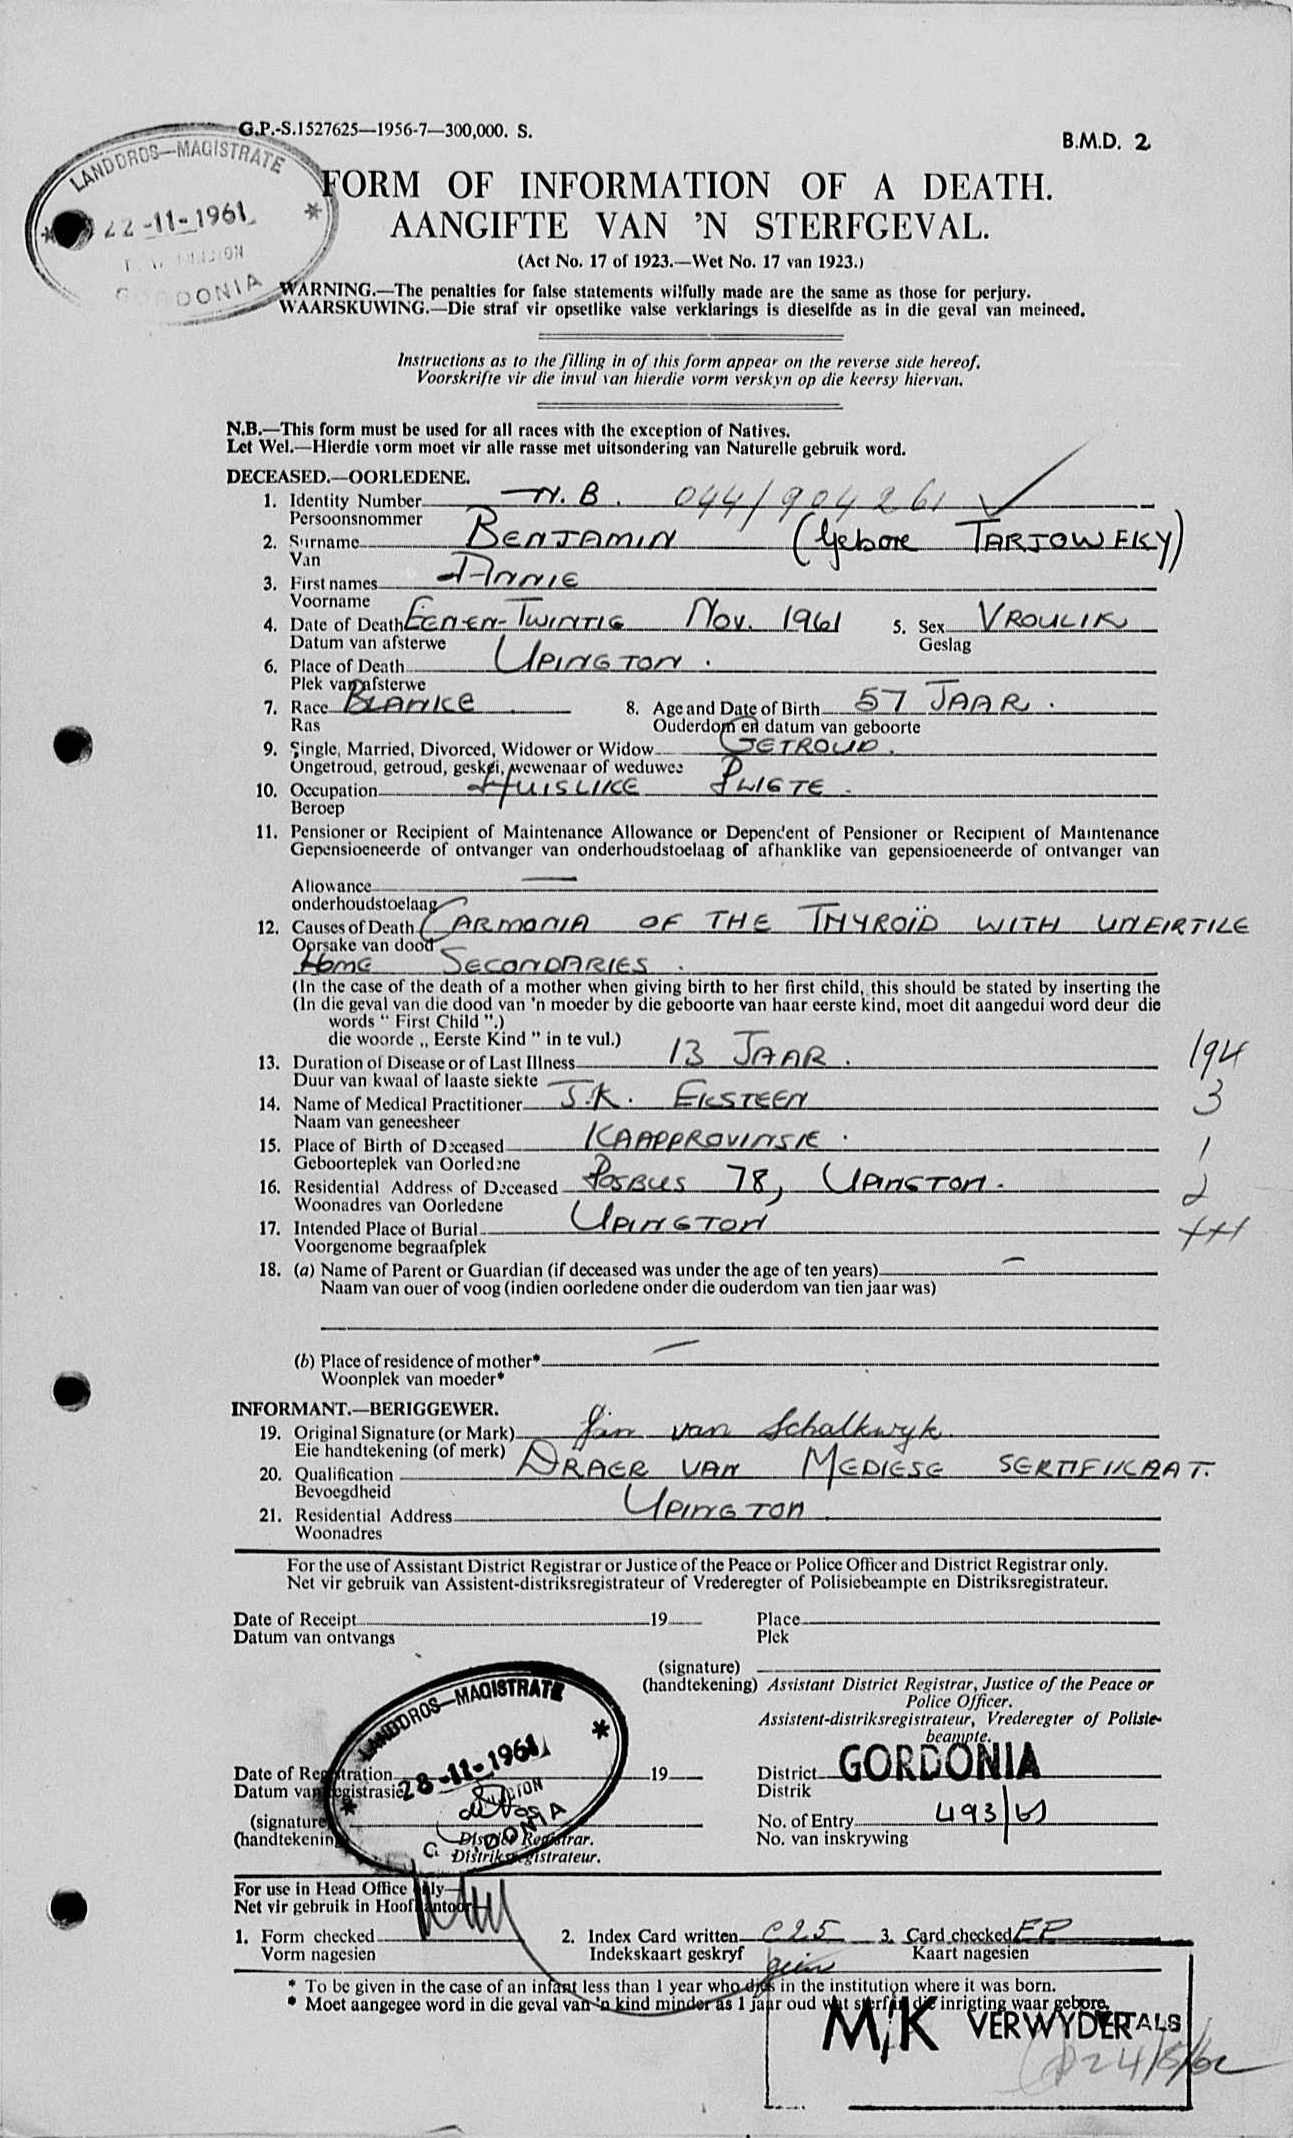 G.P.-S.1527625—1956-7—300,000. S.
B.M.D. 2
LANDDROS—MAGISTRATE
22-11-1961
GORDONIA
FORM OF INFORMATION OF A DEATH.
AANGIFTE VAN 'N STERFGEVAL.
(Act No. 17 of 1923.—Wet No. 17 van 1923.)
WARNING.—The penalties for false statements wilfully made are the same as those for perjury.
WAARSKUWING.—Die straf vir opsetlike valse verklarings is dieselfde as in die geval van meineed.
Instructions as to the filling in of this form appear on the reverse side hereof.
Voorskrifte vir die invul van hierdie vorm verskyn op die keersy hiervan.
N.B.—This form must be used for all races with the exception of Natives.
Let Wel.—Hierdie vorm moet vir alle rasse met uitsondering van Naturelle gebruik word.
DECEASED.—OORLEDENE.
1. Identity Number N.B. 044/904261
Persoonsnommer
2. Surname BENJAMIN (Gebore TARJOWEKY)
Van
3. First names ANNIE
Voorname
4. Date of Death EEN-EN-TWINTIG NOV. 1961 5. Sex VROULIK
Datum van afsterwe Geslag
6. Place of Death UPINGTON.
Plek van afsterwe
7. Race BLANKE 8. Age and Date of Birth 57 JAAR.
Ras Ouderdom en datum van geboorte
9. Single, Married, Divorced, Widower or Widow GETROUD.
Ongetroud, getroud, geskei, wewenaar of weduwee
10. Occupation HUISLIKE PLIGTE.
Beroep
11. Pensioner or Recipient of Maintenance Allowance or Dependent of Pensioner or Recipient of Maintenance
Gepensioeneerde of ontvanger van onderhoudstoelaag of afhanklike van gepensioeneerde of ontvanger van
Allowance —
onderhoudstoelaag
12. Causes of Death CARMONIA OF THE THYROÏD WITH UNFIRTILE
Oorsake van dood
HOME SECONDARIES.
(In the case of the death of a mother when giving birth to her first child, this should be stated by inserting the
(In die geval van die dood van 'n moeder by die geboorte van haar eerste kind, moet dit aangedui word deur die
words " First Child ".)
die woorde „ Eerste Kind " in te vul.)
13. Duration of Disease or of Last Illness 13 JAAR. 194
Duur van kwaal of laaste siekte
14. Name of Medical Practitioner J.K. EKSTEEN 3
Naam van geneesheer
15. Place of Birth of Deceased KAAPPROVINSIE. 1
Geboorteplek van Oorledene
16. Residential Address of Deceased POSBUS 78, UPINGTON. 2
Woonadres van Oorledene
17. Intended Place of Burial UPINGTON
Voorgenome begraafplek
18. (a) Name of Parent or Guardian (if deceased was under the age of ten years) —
Naam van ouer of voog (indien oorledene onder die ouderdom van tien jaar was)
(b) Place of residence of mother* —
Woonplek van moeder*
INFORMANT.—BERIGGEWER.
19. Original Signature (or Mark) van Schalkwyk
Eie handtekening (of merk)
20. Qualification DRAER VAN MEDIESE SERTIFIKAAT.
Bevoegdheid
21. Residential Address UPINGTON.
Woonadres
For the use of Assistant District Registrar or Justice of the Peace or Police Officer and District Registrar only.
Net vir gebruik van Assistent-distriksregistrateur of Vrederegter of Polisiebeampte en Distriksregistrateur.
Date of Receipt 19 Place
Datum van ontvangs Plek
(signature)
(handtekening) Assistant District Registrar, Justice of the Peace or
Police Officer.
Assistent-distriksregistrateur, Vrederegter of Polisie-
beampte.
LANDDROS—MAGISTRATE
28-11-1961
Date of Registration 19 District GORDONIA
Datum van registrasie Distrik
(signature) No. of Entry 493/61
(handtekening) No. van inskrywing
District Registrar.
Distriksregistrateur.
For use in Head Office only—
Net vir gebruik in Hoofkantoor—
1. Form checked 2. Index Card written C25 3. Card checked EP
Vorm nagesien Indekskaart geskryf Kaart nagesien
* To be given in the case of an infant less than 1 year who dies in the institution where it was born.
* Moet aangegee word in die geval van 'n kind minder as 1 jaar oud wat sterf in die inrigting waar gebore.
M/K VERWYDER
24/5/62